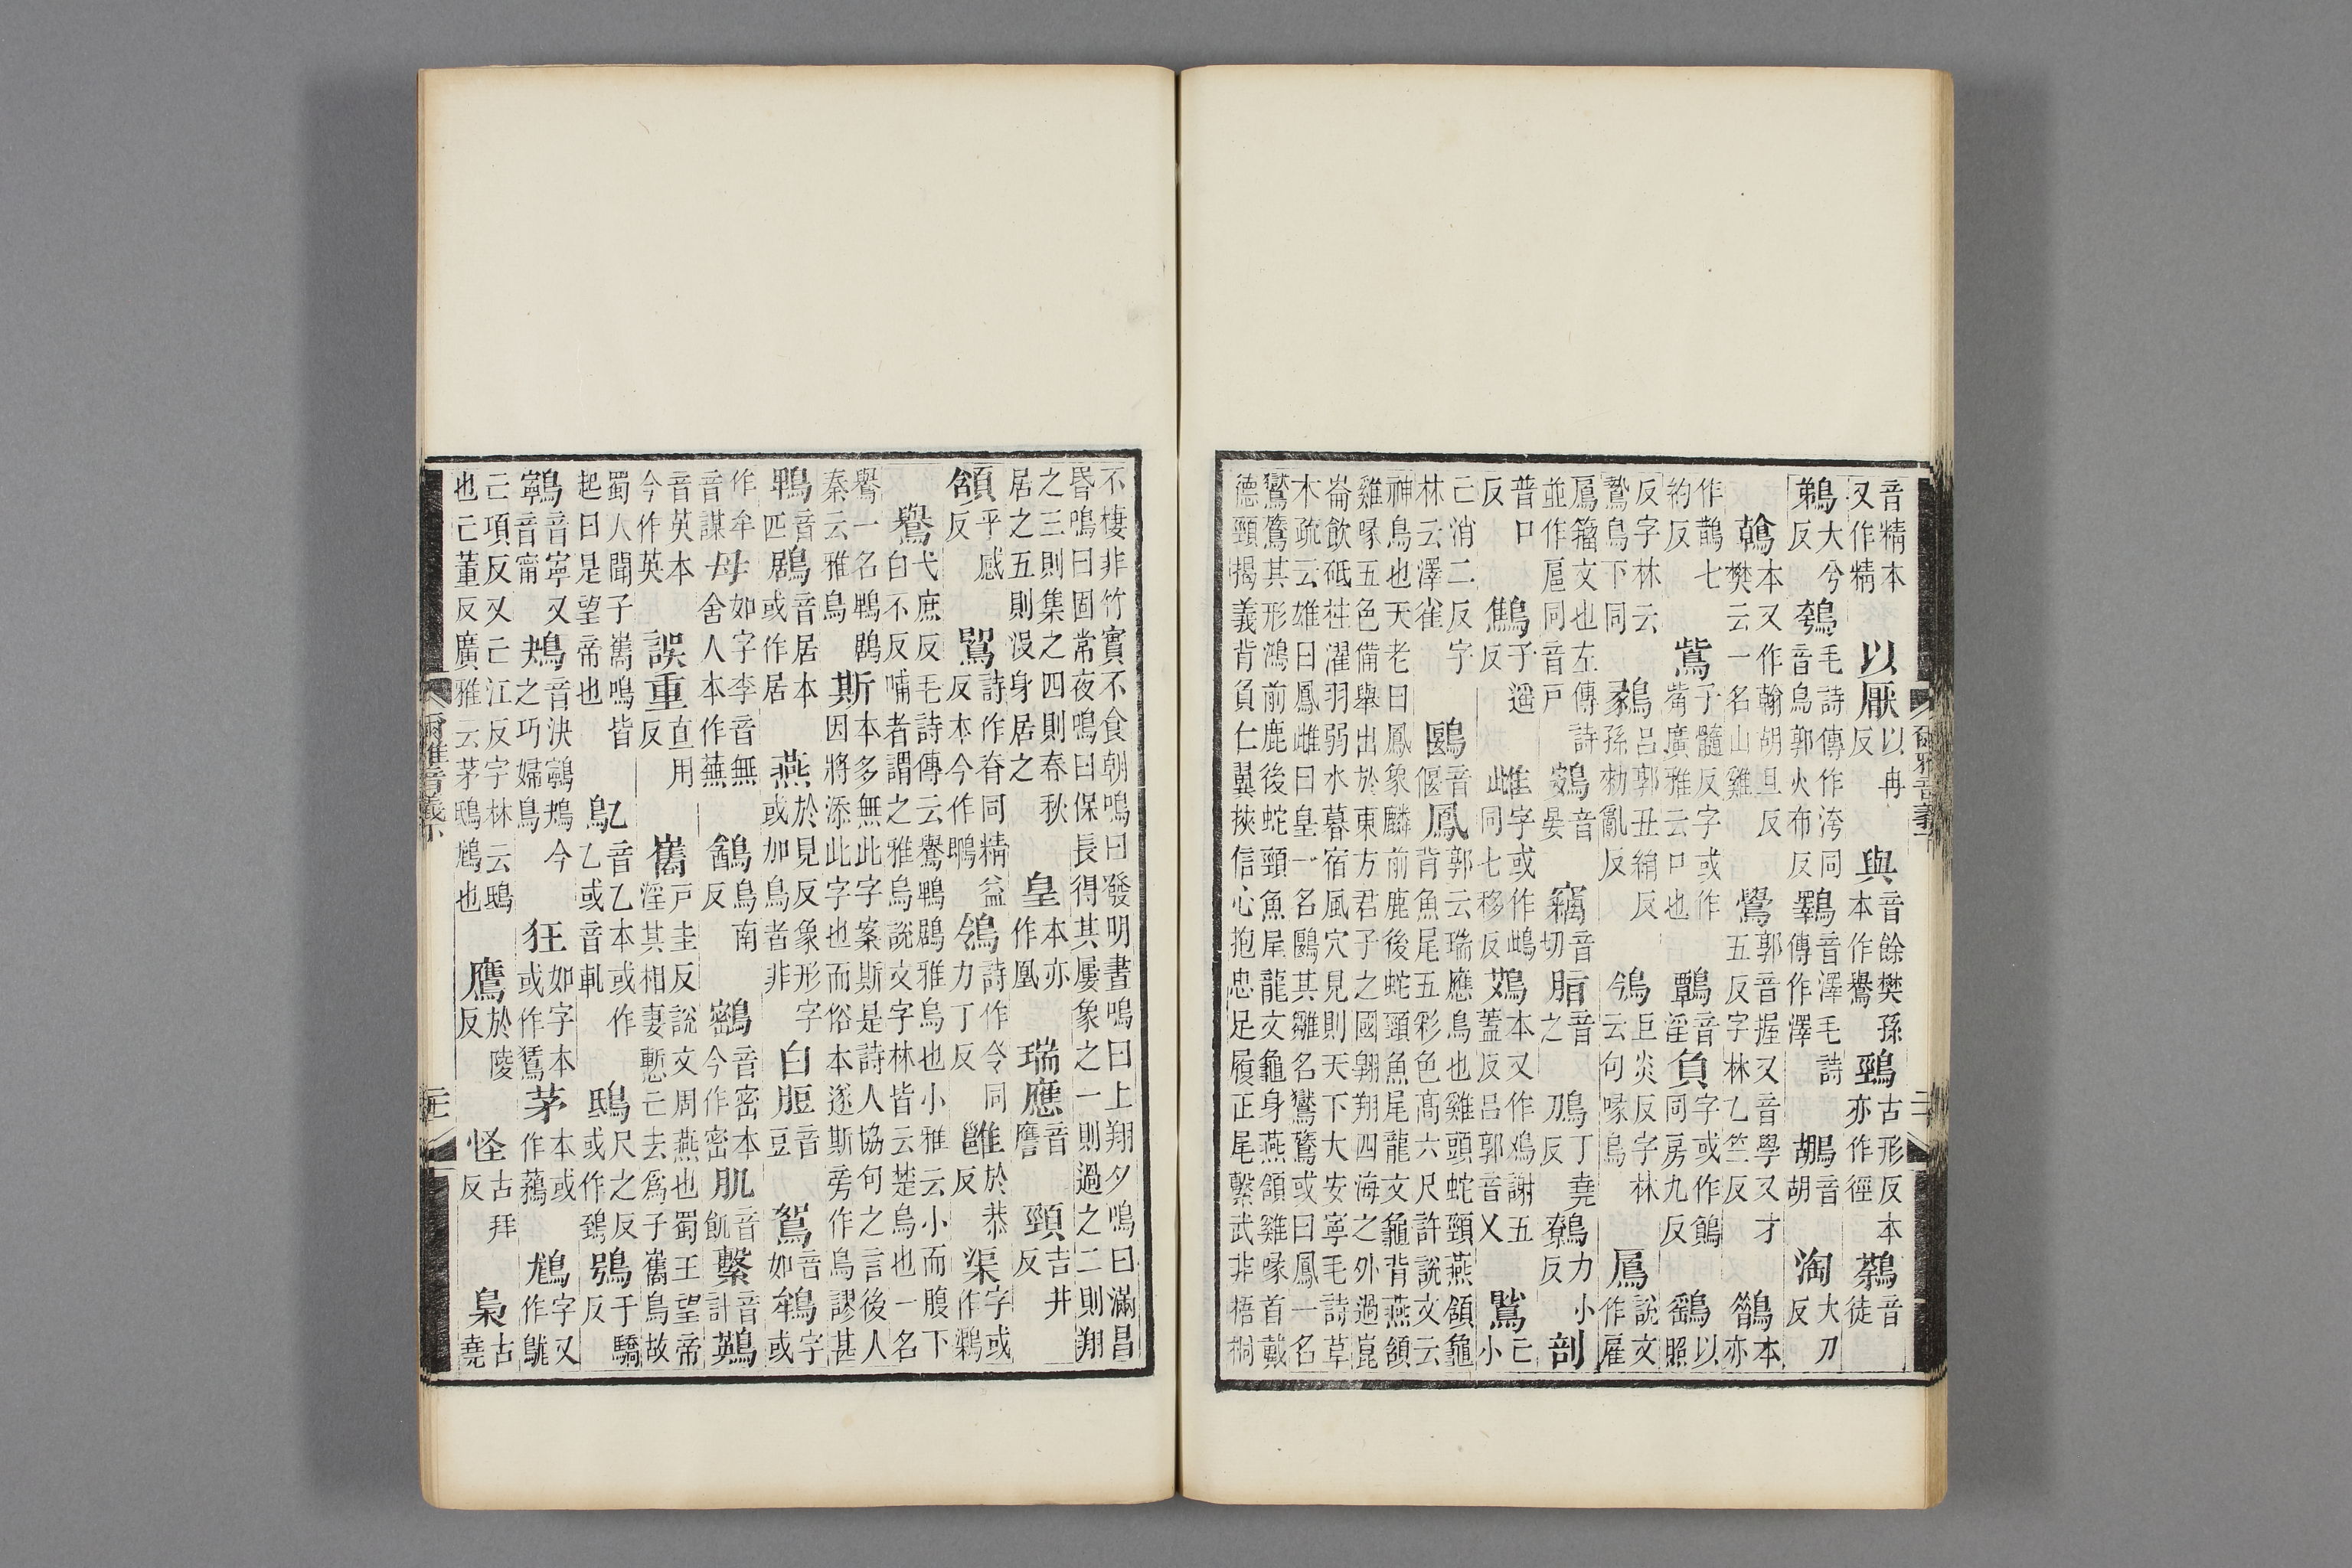 音精本又作精 以厭以冉反 與音餘樊孫本作鸒 鵛古形反本亦作徑 鷋音徒
鵜大兮反 鴮毛詩傳作洿同音烏郭火布反 鸅音澤毛詩傳作澤 鶘音胡 淘大刀反
鶾本又作翰胡旦反樊云一名山雞 鷽郭音握又音學又才五反字林乙竺反 本亦
作鵲七約反 鴜子髓反字或作觜廣雅云口也 鷣音淫 負字或作同房九反 鷂以照
反字林云鷙鳥下同 鶨呂郭丑絹反孫勑亂反 鳹巨炎反字林云句喙鳥 鳸說文作雇
鳸籀文也左傳詩並作扈同音戶 鷃音晏 竊音切 脂音之 鳭丁堯反 鷯力小反 剖
普口反 鷦子遥反 雌字或作䳄同七移反 鴱本又作謝五蓋反呂郭音乂 己小
己消二反字林云澤雀 鶠音偃 鳳郭云瑞應鳥也雞頭蛇頸燕頷龜背魚尾五彩色高六尺許說文云
神鳥也天老曰鳳象麟前鹿後蛇頸魚尾龍文龜背燕頷雞喙五色備舉出於東方君子之國翱翔四海之外過崑
崙飲砥柱濯羽弱水暮宿風穴見則天下大安寧毛詩草木疏云雄曰鳳雌曰皇一名鶠其雛名鸑鷟或曰鳳一名
鸑鷟其形鴻前鹿後蛇頸魚尾龍文龜身燕頷雞喙首戴德頸揭義背負仁翼挾信心抱忠足履正尾繫武非梧桐
爾雅音義下
不棲非竹實不食朝鳴曰發明晝鳴曰上翔夕鳴曰滿昌昏鳴曰固常夜鳴曰保長得其屢象之一則過之二則翔
之三則集之四則春秋居之五則沒身居之 皇本亦作凰 瑞應音譍 頸吉井反
頷平感反 詩作脊同精益反本今作 鴒詩作令同力丁反 雝於恭反 渠字或作鸜
鸒弋庶反毛詩傳云鸒鵯鶋雅烏也小雅云小而腹下白不反哺者謂之雅烏說文字林皆云楚烏也一名
鸒一名鵯鶋秦云雅烏 斯本多無此字案斯是詩人協句之言後人因將添此字也而俗本遂斯旁作鳥謬甚
鵯音匹 鶋音居本或作居 燕於見反象形字或加鳥者非 白脰音豆 鴽音如 鴾字或
作牟音謀 母如字李音無舍人本作蕪 鶕烏南反 音密本今作密 肌音飢 繫音計 鶧
音英本今作英 誤重直用反 巂戶圭反說文周燕也蜀王望帝淫其相妻慙亡去爲子巂鳥故
蜀人聞子巂鳴皆起曰是望帝也 鳦音乙本或作乙或音軋 鴟尺之反或作鵄 鴞于驕反
鸋音寧又音甯 鴂音決鸋鴂今之巧婦鳥 狂如字本或作鵟 茅本或作鶜 字又作
己項反又己江反字林云鴟也己董反廣雅云茅鴟也 鷹於陵反 怪古拜反 梟古堯
爾雅音義下